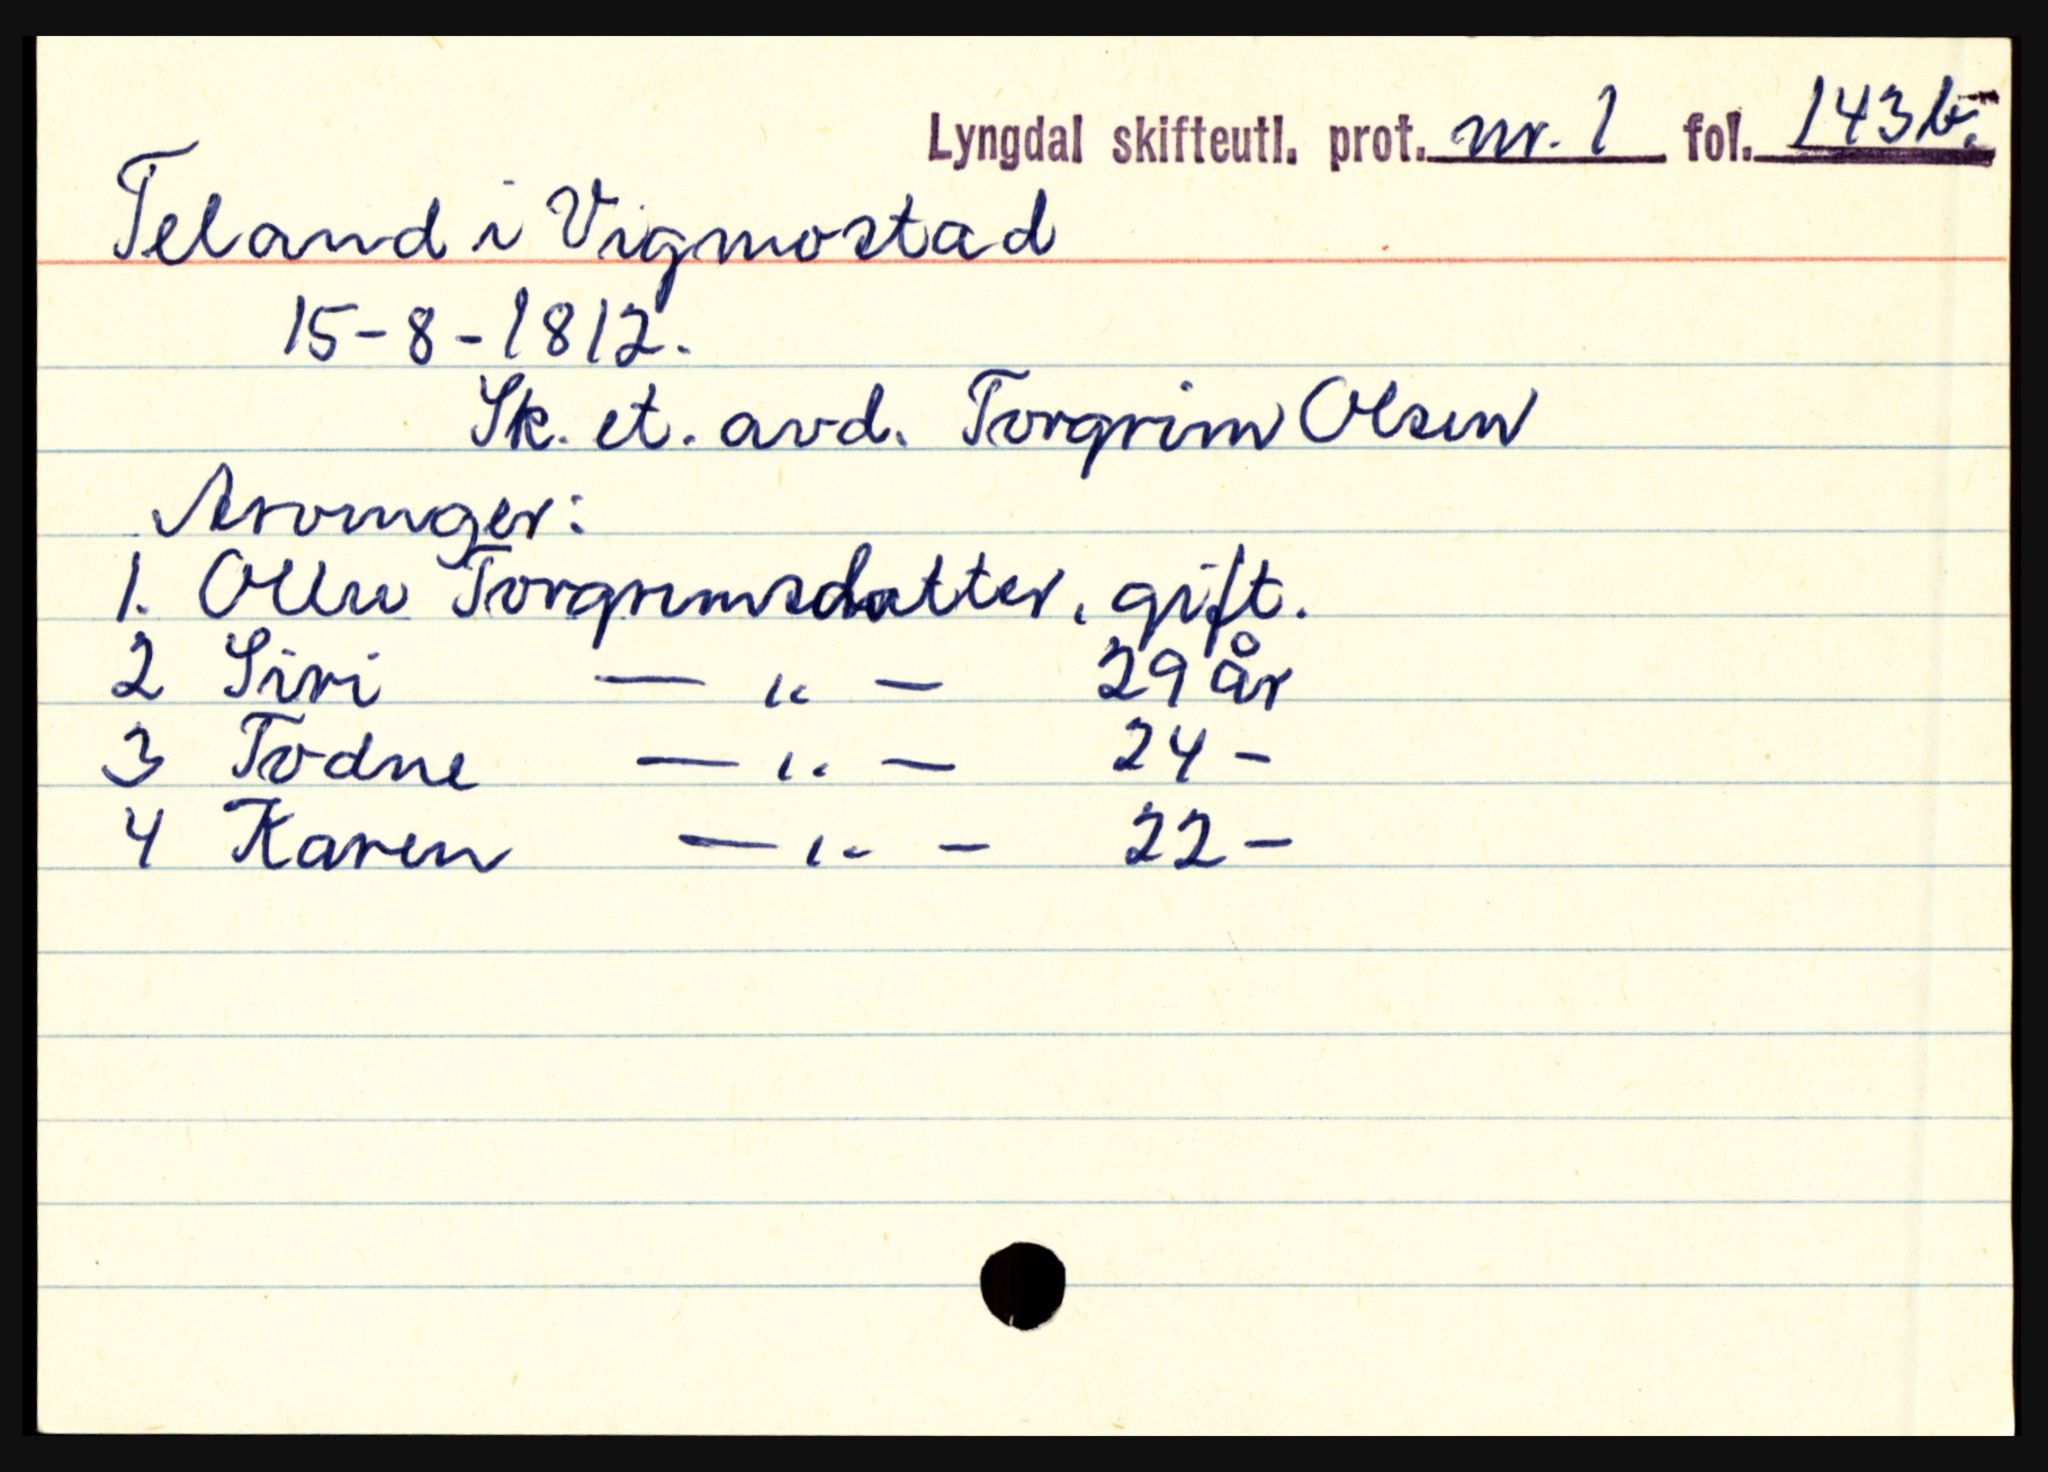 Lyngdal skifteutl. prot. nr. 1 fol. 143b.
Teland i Vigmostad
15-8-1812.
Sk. et. avd. Torgrim Olsen
Arvinger:
1. Olleu Torgrimsdatter, gift.
2 Siri — " — 29 år
3 Todne — " — 24 -
4 Karen — " — 22 -